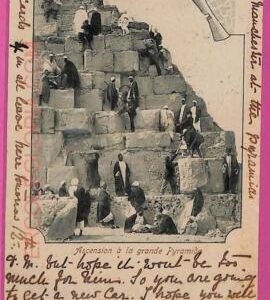 cards
all leave here
Manchester at the pyramids
Ascension à la grande Pyramide
M. but hope it won't be too
much for him. So you are going
to get a new car. I hope you will